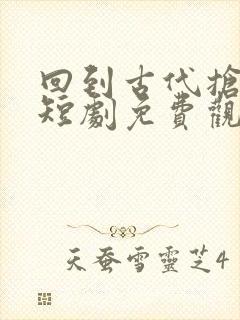 回到古代搶
短劇免費觀
天蚕雪靈芝4